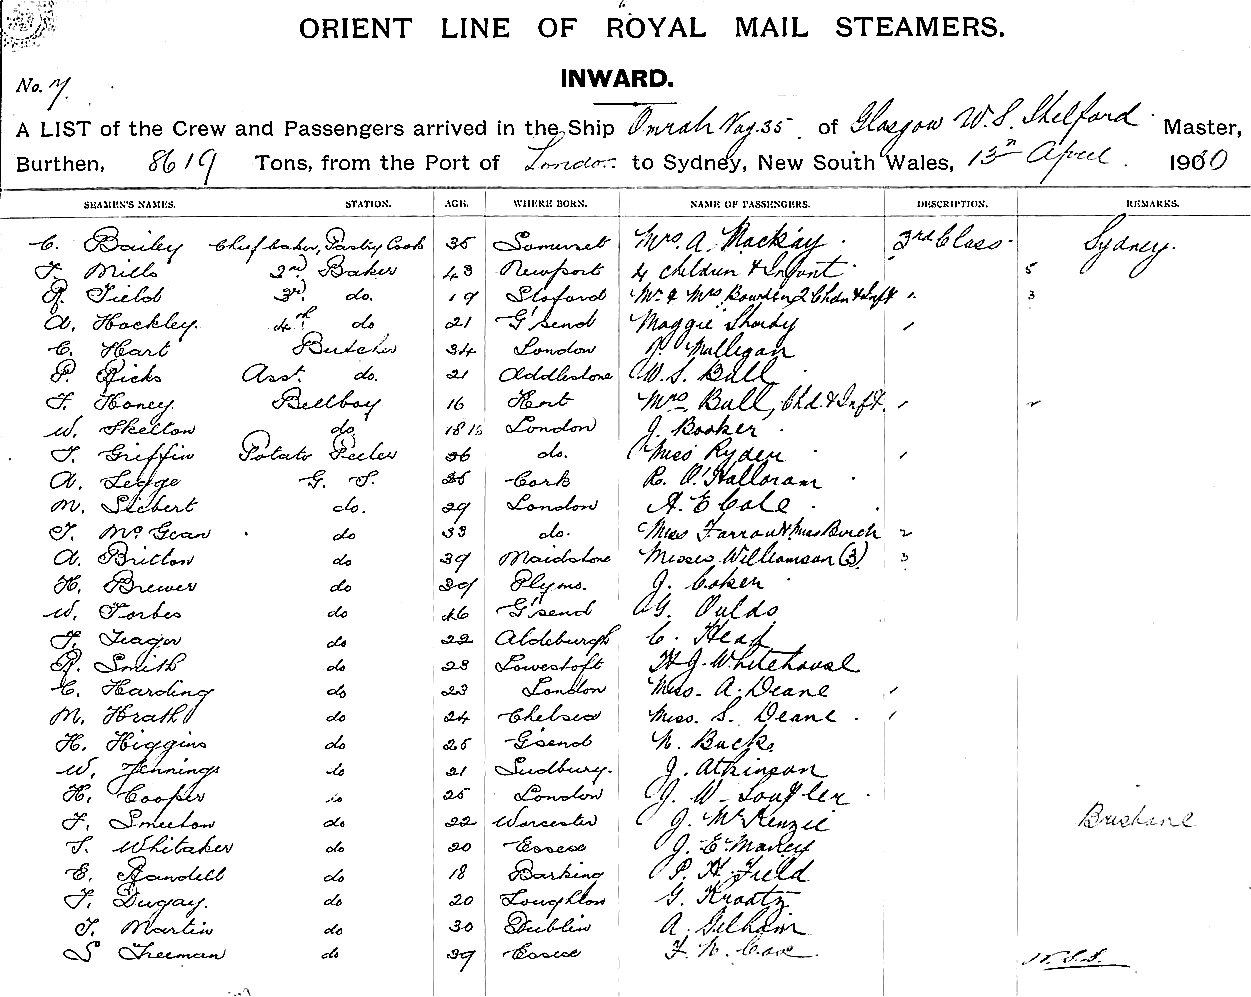 ORIENT LINE OF ROYAL MAIL STEAMERS.
No. 7.
INWARD.
A LIST of the Crew and Passengers arrived in the Ship Omrah Voy. 35 of Glasgow W. S. Shelford Master,
Burthen, 8619 Tons, from the Port of London to Sydney, New South Wales, 13th April. 1900
SEAMEN'S NAMES. STATION. AGE. WHERE BORN. NAME OF PASSENGERS. DESCRIPTION. REMARKS.
C. Bailey Chief baker, Pastry Cook 35 Somerset Mrs. A. Mackay. 3rd Class. Sydney.
F. Mills 2nd Baker 43 Newport 4 children & Infant 5
R. Field 3rd. do. 19 Mr & Mrs Bowden 2 Chdn & Inft " 3
A. Hockley. 4th do 21 G'send Maggie "
C. Hart Butcher 34 London Mulligan
P. Ricks Asst. do. 21 Addlestone W. S. Ball
F. Honey. Bellboy 16 Kent Mrs Ball, Chd. & Inft. "
W. Skelton do 18 London J. Booker
T. Griffin Potato Peeler 36 do. Miss Ryder "
A. Legge G. S. 35 Cork R. O'Halloran
M. Siebert do. 29 London A. E. Cole
T. McGean do 33 do. Miss Farrow & Miss Burch 2
A. Britton do 39 Maidstone Misses Williamson (3) 3
H. Brewer do 39 Plym. J. Coker
W. Forbes do 46 G'send G. Oulds
F. Teager do 22 Aldeburgh C. Heaf
R. Smith do 28 Lowestoft H. J. Whitehouse
C. Harding do 23 London Miss. A. Deane "
M. Hrath do 24 Chelsea Miss. S. Deane "
H. Higgins do 25 G'send N. Buck
W. Jennings do 21 Sudbury. J. Atkinson
H. Cooper do 25 London J. W.
F. Smeeton do 22 Worcester J. McKenzie Brisbane
T. Whitaker do 20 Essex J. E. Maney
E. Randell do 18 Barking P. H. Field
F. Dugay. do 20 Loughton G. Kraatz
T. Martin do 30 Dublin A. Gilham
S Freeman do 39 Essex F. N. Cox